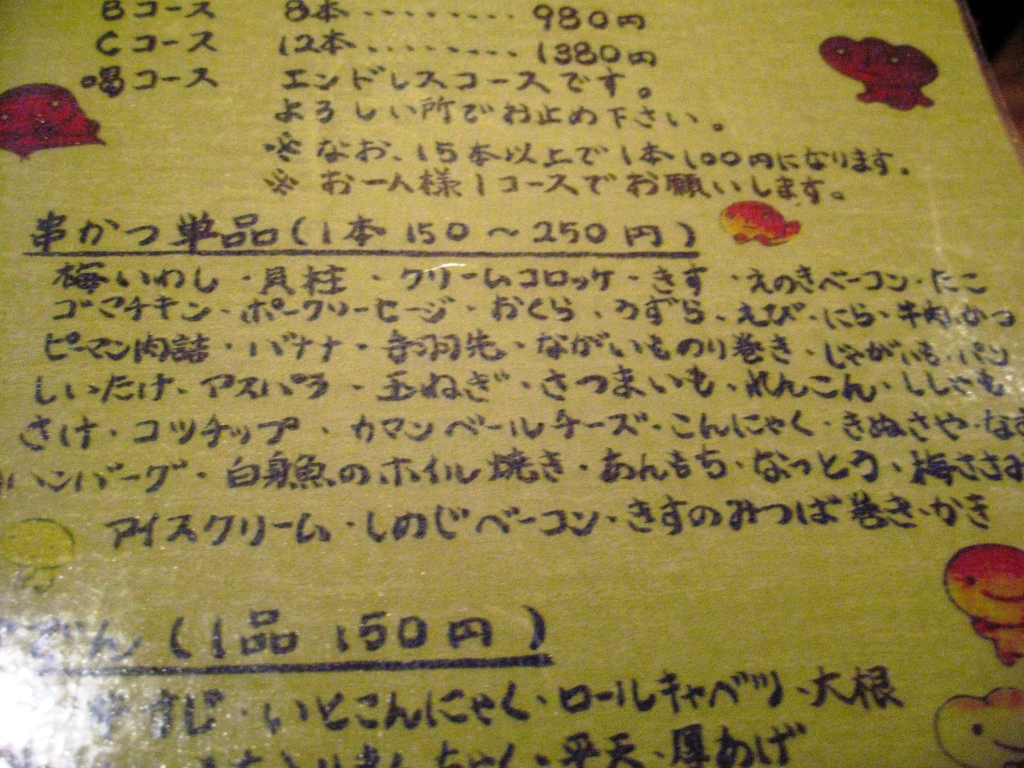 Bコース 8本・・・・・・・・980円
Cコース 12本・・・・・・・・1380円
喝コース エンドレスコースです。
よろしい所でお止め下さい。
※なお、15本以上で1本100円になります。
※お一人様1コースでお願いします。
串かつ単品(1本150〜250円)
梅いわし・貝柱・クリームコロッケ・きす・えのきベーコン・たこ
ゴマチキン・ポークソーセージ・おくら・うずら・えび・にら・牛肉かつ
ピーマン肉詰・バナナ・手羽先・ながいものり巻き・じゃがいも・パン
しいたけ・アスパラ・玉ねぎ・さつまいも・れんこん・ししゃも
さけ・コツチップ・カマンベールチーズ・こんにゃく・きぬさや・なす
ハンバーグ・白身魚のホイル焼き・あんもち・なっとう・梅ささみ
アイスクリーム・しめじベーコン・きすのみつば巻き・かき
でん(1品150円)
すじ・いとこんにゃく・ロールキャベツ・大根
平天・厚あげ